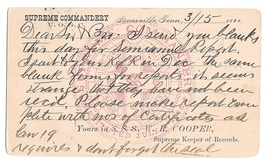 SUPREME COMMANDERY
Tenn. 3/15
Dear Sir & Bro. I send you blanks
this day for Semiannual Report.
I sent them to K of R in Dec. The same
blank forms for reports. it seems
strange that they have not been
recd. Please make report com
plete with nos of Certificates as
law 19
Yours in S. & S. R. COOPER,
requires & dont forget the seal
Supreme Keeper of Records.